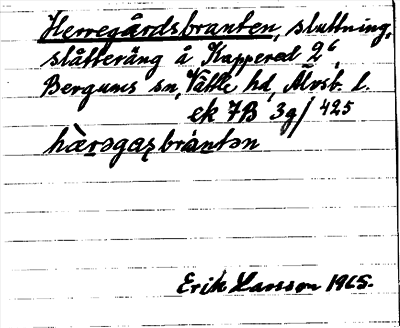 Herregårdsbranten, sluttning,
slåtteräng å Kapperød 2⁶,
Bergums sn, Vättle hd, Älvsb. l.
ek 7B 3g/425
hàrəgaʂbrántən
Erik Hansson 1965.